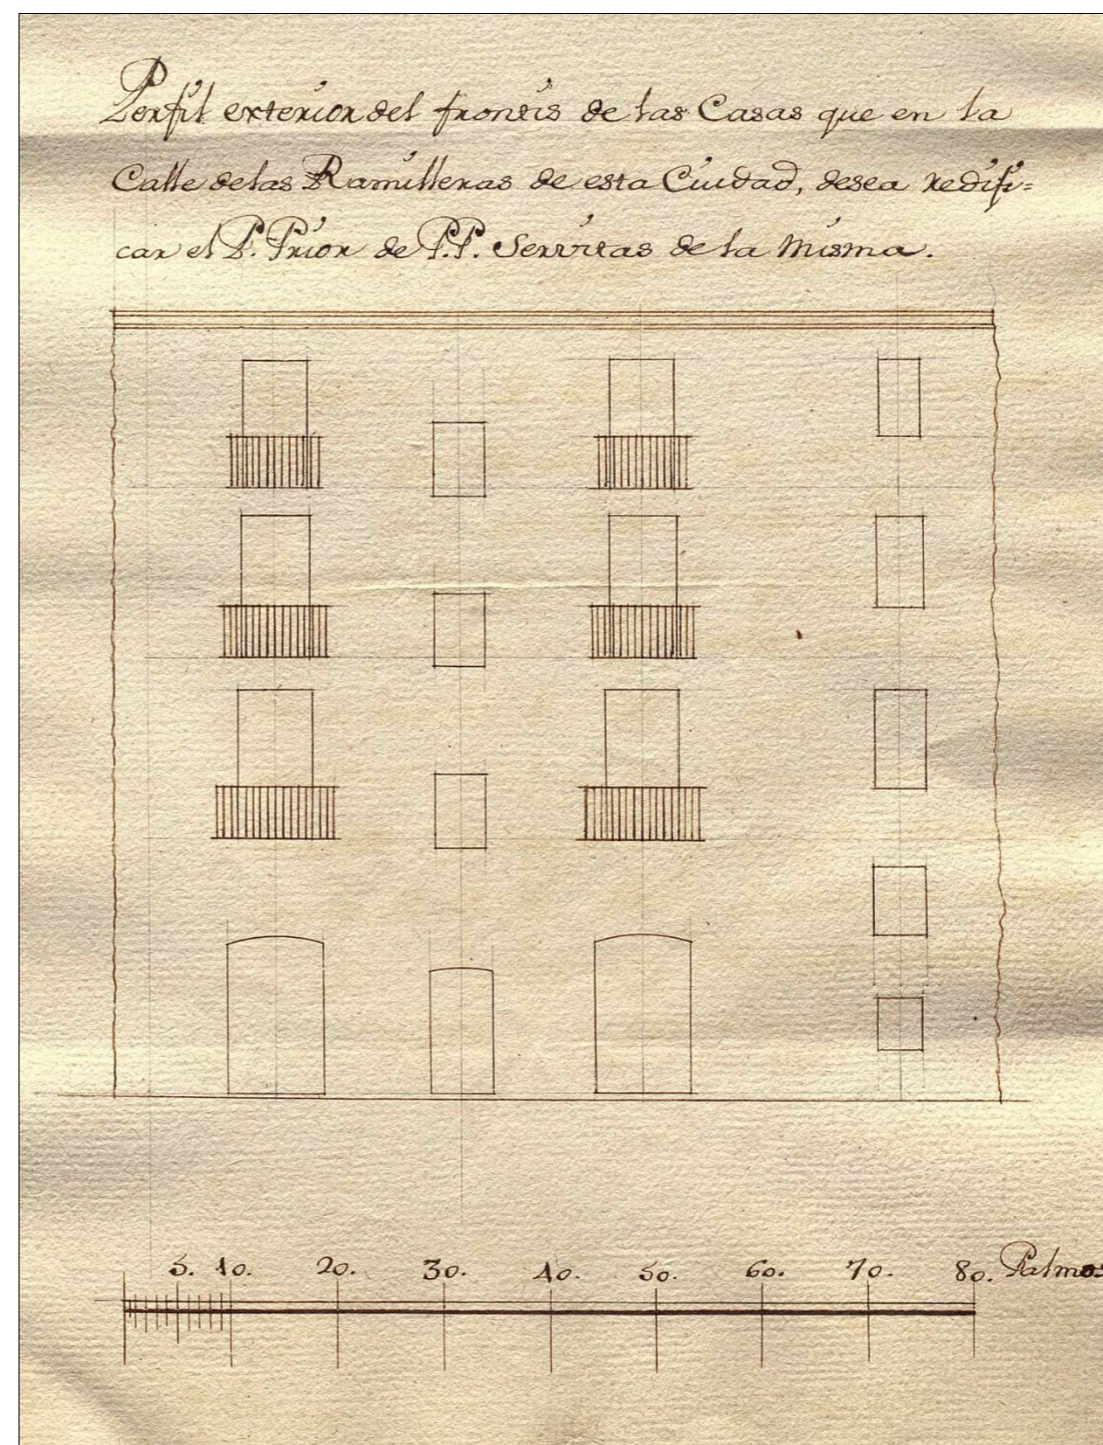 Perfil exterior del frontis de las Casas que en la
Calle de las Ramilleras de esta Ciudad, desea redifi=
car el P. Prior de P.P. Servitas de la misma.
5. 10. 20. 30. 40. 50. 60. 70. 80. Palmos